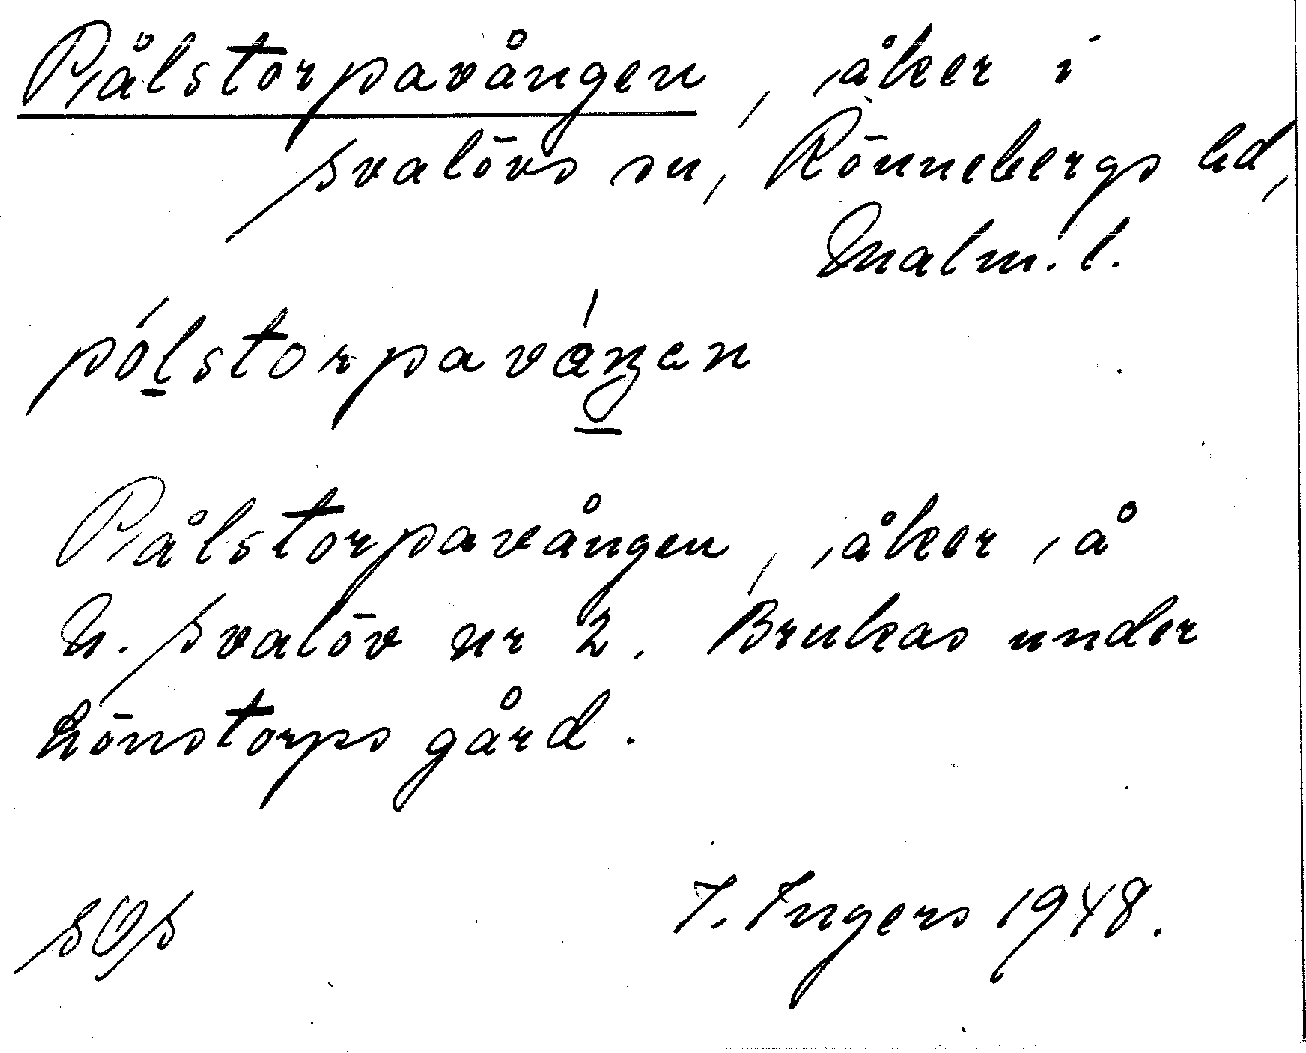 Pålstorpavången, åker i
Svalövs sn, Rönnebergs hd,
Malm. l.
pólstorpaváŋen
Pålstorpavången, åker å
N. Svalöv nr 2. Brukas under
Lönstorps gård.
I. Ingers 1948.